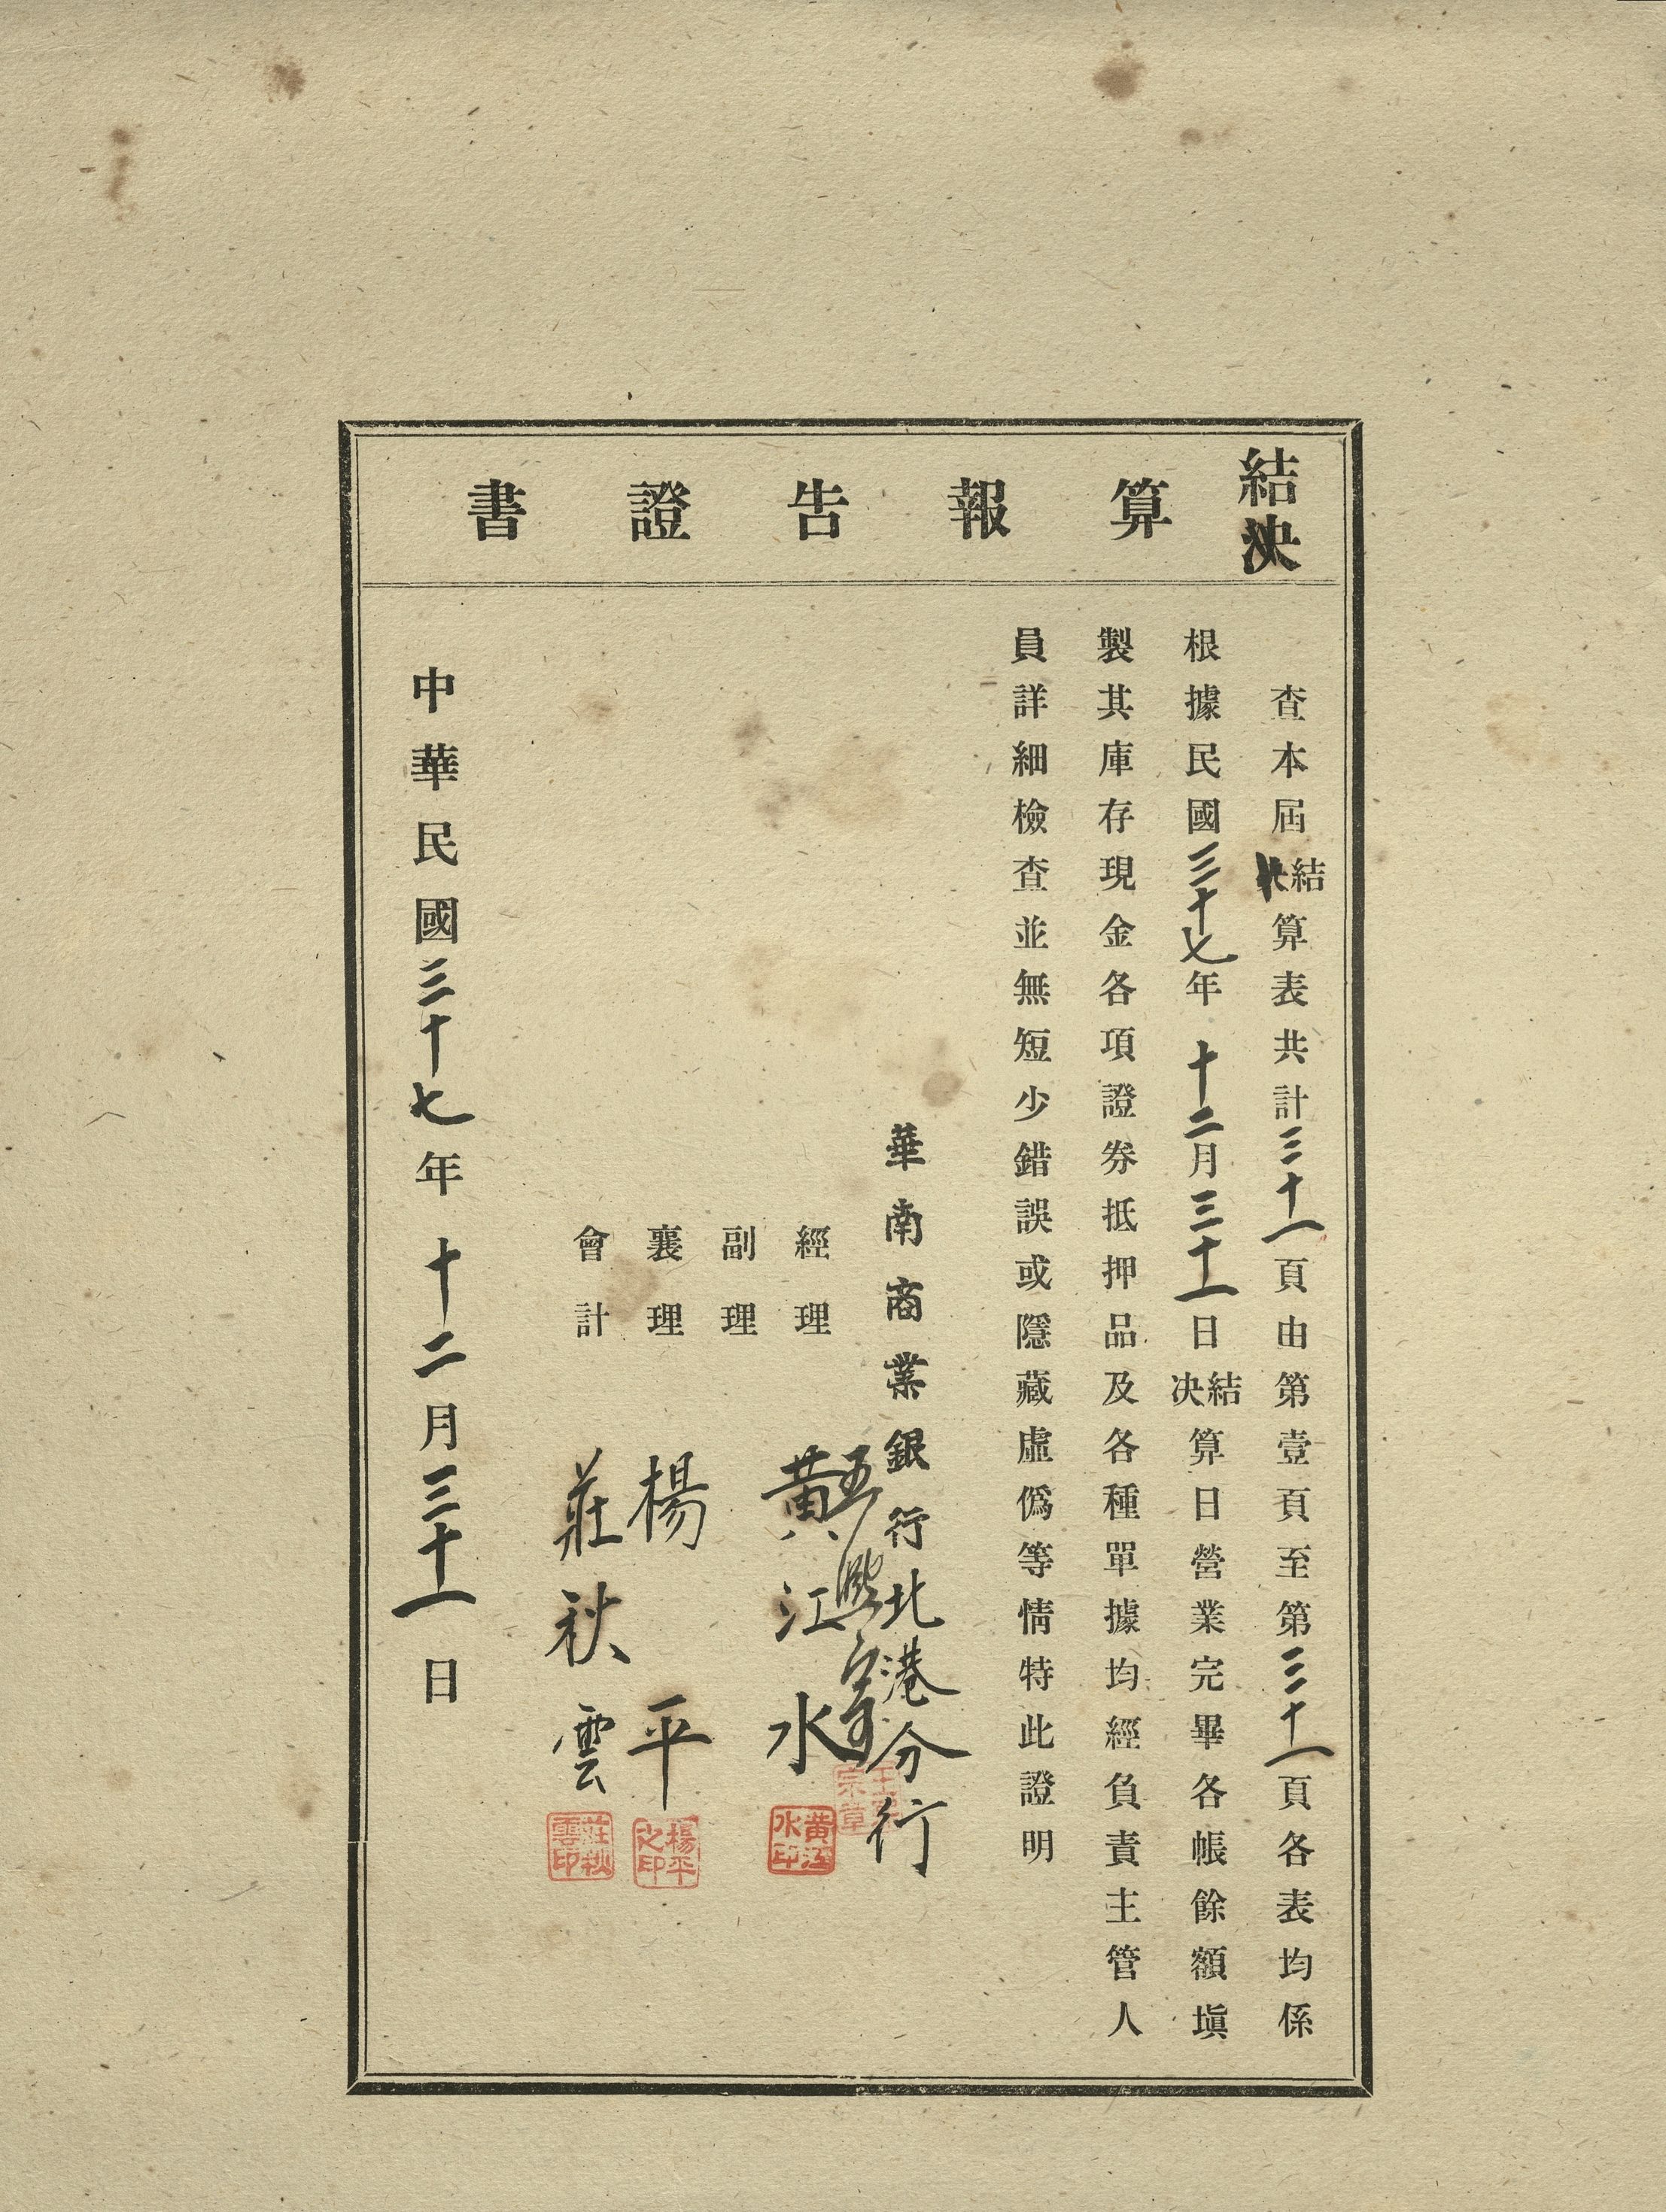 結決算報告證書
查本屆結決算表共計三十一頁由第壹頁至第三十一頁各表均係
根據民國三十七年十二月三十一日結決算日營業完畢各帳餘額塡
製其庫存現金各項證券抵押品及各種單據均經負責主管人
員詳細檢查並無短少錯誤或隱藏虛僞等情特此證明
華南商業銀行北港分行
經理 黃江水
黃江水印
副理
襄理 楊平
楊平之印
會計 莊秋雲
莊秋雲印
中華民國三十七年十二月三十一日